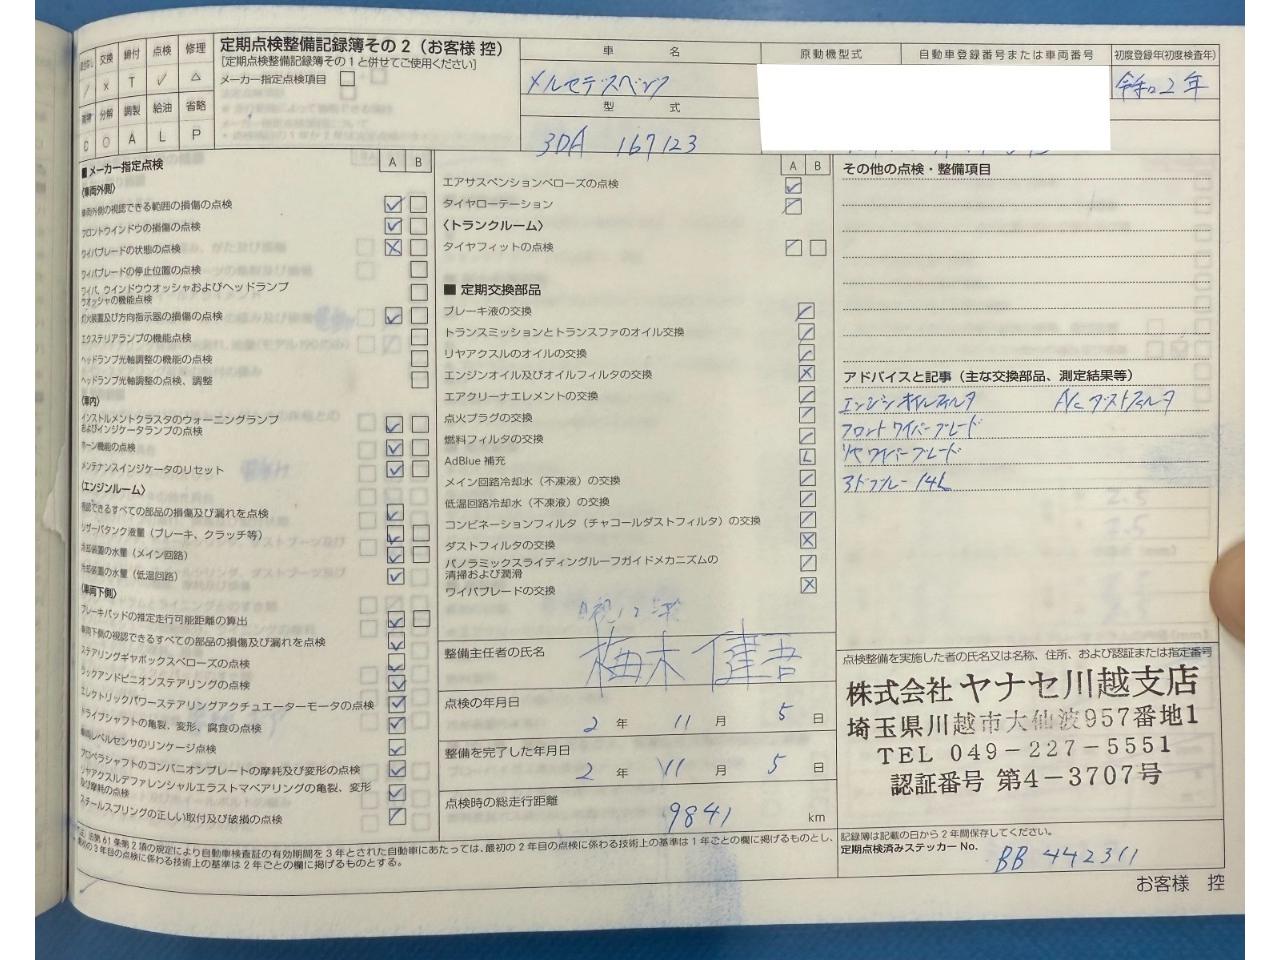 交換 締付 点検 修理
/ × T ✓ △
分解 調製 給油 省略
C O A L P
定期点検整備記録簿その2(お客様 控)
[定期点検整備記録簿その1と併せてご使用ください]
メーカー指定点検項目
車 名
メルセデスベンツ
型 式
3DA 167123
原動機型式
自動車登録番号または車両番号
初度登録年(初度検査年)
令和2年
■メーカー指定点検
A B
〈車両外側〉
車両外側の視認できる範囲の損傷の点検
フロントウインドウの損傷の点検
ワイパブレードの状態の点検
ワイパブレードの停止位置の点検
ワイパ、ウインドウウオッシャおよびヘッドランプ
ウオッシャの機能点検
灯火装置及び方向指示器の損傷の点検
エクステリアランプの機能点検
ヘッドランプ光軸調整の機能の点検
ヘッドランプ光軸調整の点検、調整
〈車内〉
インストルメントクラスタのウォーニングランプ
およびインジケータランプの点検
ホーン機能の点検
メンテナンスインジケータのリセット
〈エンジンルーム〉
視認できるすべての部品の損傷及び漏れを点検
リザーバタンク液量(ブレーキ、クラッチ等)
冷却装置の水量(メイン回路)
冷却装置の水量(低温回路)
〈車両下側〉
ブレーキパッドの推定走行可能距離の算出
車両下側の視認できるすべての部品の損傷及び漏れを点検
ステアリングギヤボックスベローズの点検
ラックアンドピニオンステアリングの点検
エレクトリックパワーステアリングアクチュエーターモータの点検
ドライブシャフトの亀裂、変形、腐食の点検
車両レベルセンサのリンケージ点検
プロペラシャフトのコンパニオンプレートの摩耗及び変形の点検
リヤアクスルデファレンシャルエラストマベアリングの亀裂、変形
及び摩耗の点検
スチールスプリングの正しい取付及び破損の点検
A B
エアサスペンションベローズの点検
タイヤローテーション
〈トランクルーム〉
タイヤフィットの点検
■ 定期交換部品
ブレーキ液の交換
トランスミッションとトランスファのオイル交換
リヤアクスルのオイルの交換
エンジンオイル及びオイルフィルタの交換
エアクリーナエレメントの交換
点火プラグの交換
燃料フィルタの交換
AdBlue 補充 L
メイン回路冷却水(不凍液)の交換
低温回路冷却水(不凍液)の交換
コンビネーションフィルタ(チャコールダストフィルタ)の交換
ダストフィルタの交換
パノラミックスライディングルーフガイドメカニズムの
清掃および潤滑
ワイパブレードの交換
整備主任者の氏名
梅木 健吾
点検の年月日
2 年 11 月 5 日
整備を完了した年月日
2 年 11 月 5 日
点検時の総走行距離
9841 km
その他の点検・整備項目
アドバイスと記事(主な交換部品、測定結果等)
エンジンオイルフィルタ A/Cダストフィルタ
フロントワイパーブレード
リヤワイパーブレード
アドブルー 14L
点検整備を実施した者の氏名又は名称、住所、および認証または指定番号
株式会社 ヤナセ川越支店
埼玉県川越市大仙波957番地1
TEL 049-227-5551
認証番号 第4-3707号
記録簿は記載の日から2年間保存してください。
定期点検済みステッカー No.
BB 442311
法第61条第2項の規定により自動車検査証の有効期間を3年とされた自動車にあたっては、最初の2年目の点検に係わる技術上の基準は1年ごとの欄に掲げるものとし、
最初の3年目の点検に係わる技術上の基準は2年ごとの欄に掲げるものとする。
お客様 控